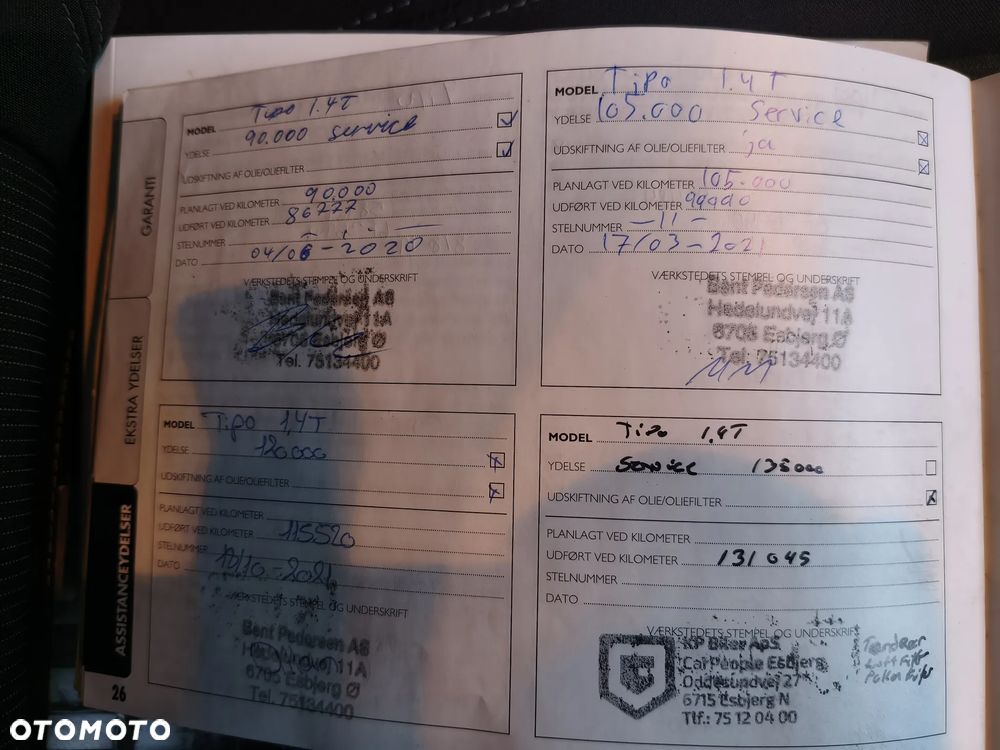 GARANTI
EKSTRA YDELSER
ASSISTANCEYDELSER
26
MODEL Tipo 1.4T
YDELSE 90.000 service
UDSKIFTNING AF OLIE/OLIEFILTER
PLANLAGT VED KILOMETER 90.000
UDFØRT VED KILOMETER 86777
STELNUMMER
DATO 04/06-2020
VÆRKSTEDETS STEMPEL OG UNDERSKRIFT
Bent Pedersen AS
Hedelundvej 11A
6705 Esbjerg Ø
Tel. 75134400
MODEL Tipo 1.4T
YDELSE 105.000 Service
UDSKIFTNING AF OLIE/OLIEFILTER ja
PLANLAGT VED KILOMETER 105.000
UDFØRT VED KILOMETER
STELNUMMER -11-
DATO 17/03-2021
VÆRKSTEDETS STEMPEL OG UNDERSKRIFT
Bent Pedersen AS
Hedelundvej 11A
6705 Esbjerg Ø
Tel. 75134400
MODEL Tipo 1,4T
YDELSE 120000
UDSKIFTNING AF OLIE/OLIEFILTER
PLANLAGT VED KILOMETER
UDFØRT VED KILOMETER 115520
STELNUMMER
DATO /10-2021
VÆRKSTEDETS STEMPEL OG UNDERSKRIFT
Bent Pedersen AS
Hedelundvej 11A
6705 Esbjerg Ø
Tel. 75134400
MODEL Tipo 1.4T
YDELSE Service 135000
UDSKIFTNING AF OLIE/OLIEFILTER
PLANLAGT VED KILOMETER
UDFØRT VED KILOMETER 131045
STELNUMMER
DATO
VÆRKSTEDETS STEMPEL OG UNDERSKRIFT
KP Biler ApS
CarPeople Esbjerg
Oddesundvej 27
6715 Esbjerg N
Tlf.: 75 12 04 00
OTOMOTO